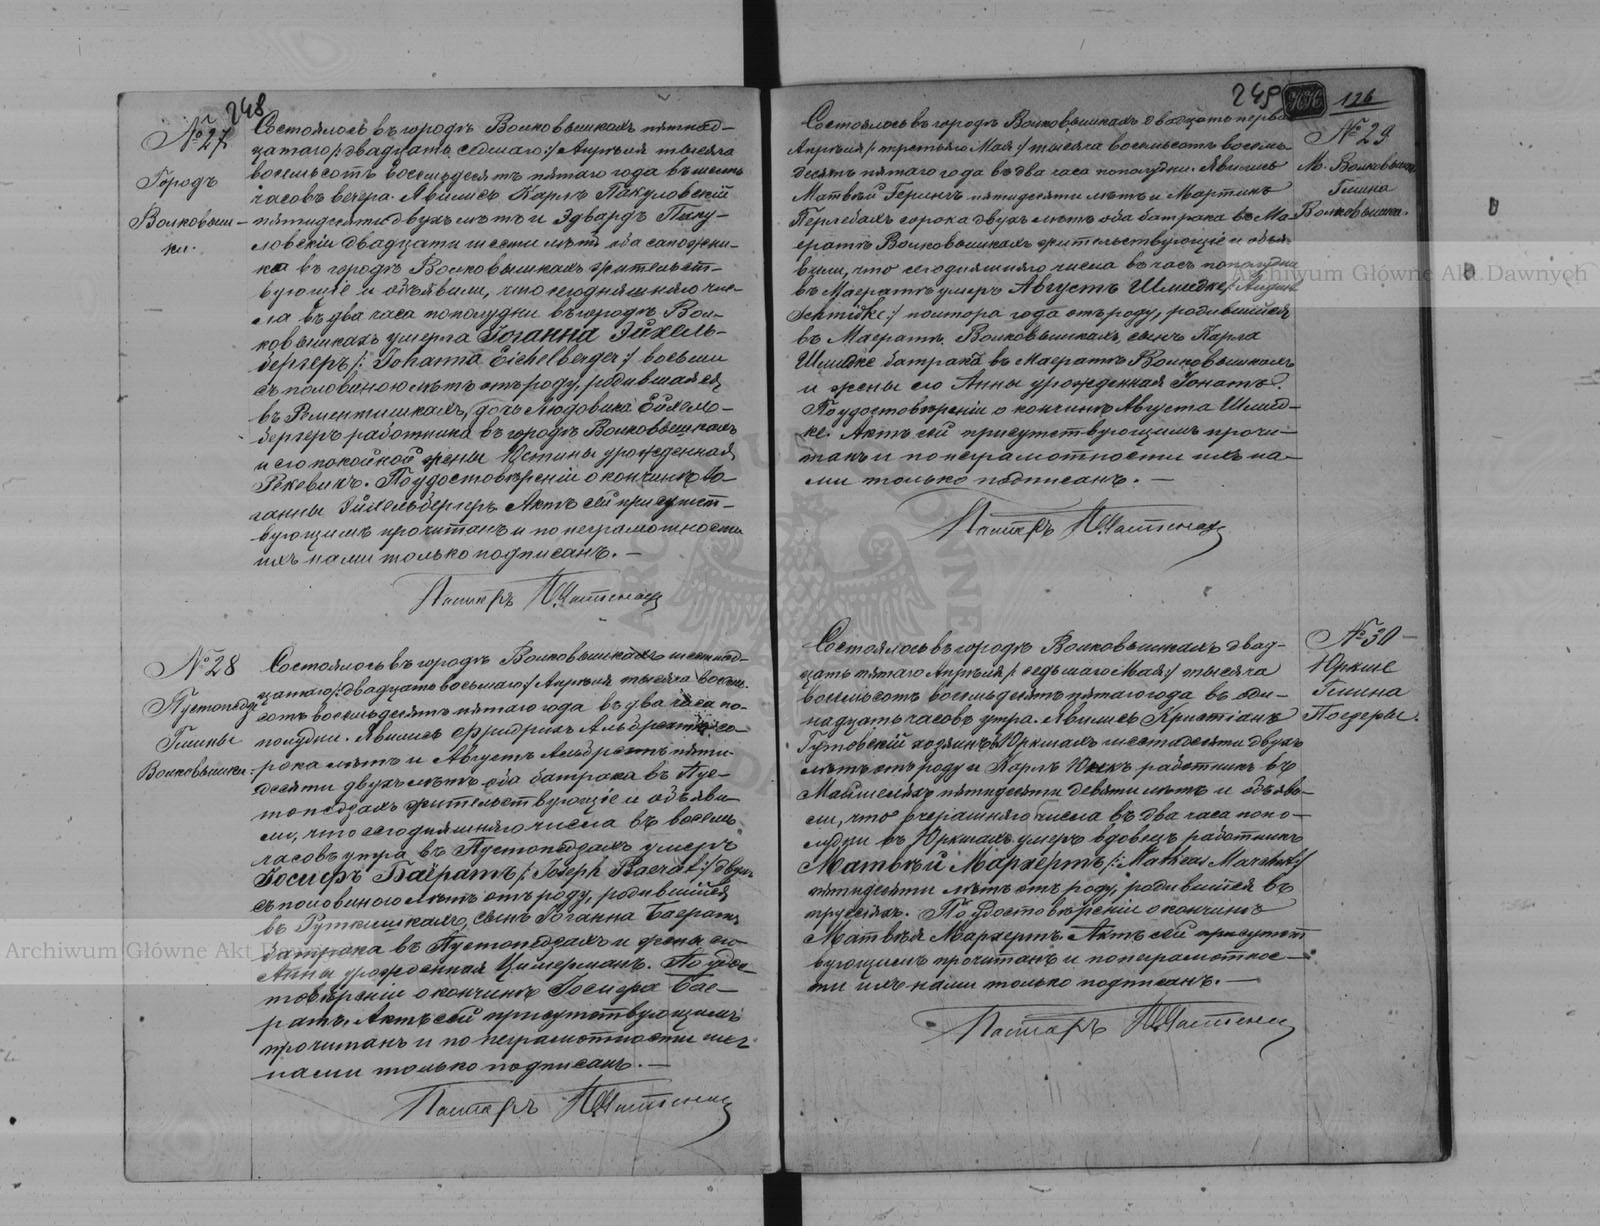 248
№ 27
Городъ
Волковыш-
ки.
Состоялось въ городѣ Волковышкахъ пятнад-
цатаго /: двадцать седьмаго :/ Апрѣля тысяча
восемьсотъ восемьдесятъ пятаго года въ шесть
часовъ вечера. Явились Карлъ Пакуловскій
пятидесяти двухъ лѣтъ и Эдвардъ Паку-
ловскій двадцати шести лѣтъ оба сапожни-
ка въ городѣ Волковышкахъ жительст-
вующіе и объявили, что сегодняшняго чис-
ла въ два часа пополудни въ городѣ Вол-
ковышкахъ умерла Іоганна Эйхель-
бергеръ /: Johanna Eichelberger :/ восьми
съ половиною лѣтъ отъ роду, родившаяся
въ дочь Людовика Ейхель-
бергеръ работника въ городѣ Волковышкахъ
и его покойной жены Юстины урожденная
Рекевикъ. По удостовѣреніи о кончинѣ Іо-
ганны Эйхельбергеръ Актъ сей присутст-
вующимъ прочитанъ и по неграмотности
ихъ нами только подписанъ. —
Пасторъ
№ 28
Пустопедзе
Гмины
Волковышки.
Состоялось въ городѣ Волковышкахъ шестнад-
цатаго /: двадцать восьмаго :/ Апрѣля тысяча восемь-
сотъ восемьдесятъ пятаго года въ два часа по-
полудни. Явились Фридрихъ Альбрехтъ со-
рока лѣтъ и Августъ Альбрехтъ пяти-
десяти двухъ лѣтъ оба батрака въ Пус-
топедзахъ жительствующіе и объяви-
ли, что сегодняшняго числа въ восемь
часовъ утра въ Пустопедзахъ умеръ
Іосифъ Баератъ /: Joseph Baerat :/ двухъ
съ половиною лѣтъ отъ роду, родившійся
въ Руткишкахъ, сынъ Іоганна Баератъ
батрака въ Пустопедзахъ и жены его
Анны урожденная Цимерманъ. По удос-
товѣреніи о кончинѣ Іосифа Бае-
ратъ, Актъ сей присутствующимъ
прочитанъ и по неграмотности ихъ
нами только подписанъ. —
Пасторъ
249
126
№ 29
М. Волковышки
Гмина
Волковышки.
Состоялось въ городѣ Волковышкахъ двадцать перваго
Апрѣля /: третьяго Мая :/ тысяча восемьсотъ восемь-
десятъ пятаго года въ два часа пополудни. Явились
Матвѣй Герингъ пятидесяти лѣтъ и Мартинъ
Герлебахъ сорока двухъ лѣтъ оба батрака въ Ма-
ератѣ Волковышкахъ жительствующіе и объя-
вили, что сегодняшняго числа въ часъ пополудни
въ Маератѣ умеръ Августъ Шмидке /: August
Schmidke :/ полтора года отъ роду, родившійся
въ Маератѣ Волковышкахъ, сынъ Карла
Шмидке батрака въ Маератѣ Волковышкахъ
и жены его Анны урожденная Іонатъ.
По удостовѣреніи о кончинѣ Августа Шмид-
ке. Актъ сей присутствующимъ прочи-
танъ и по неграмотности ихъ на-
ми только подписанъ. —
Пасторъ
№ 30
Юркше
Гмина
Поедеры.
Состоялось въ городѣ Волковышкахъ двад-
цать пятаго Апрѣля /: седьмаго Мая :/ тысяча
восемьсотъ восемьдесятъ пятаго года въ оди-
надцать часовъ утра. Явились Кристіанъ
Гутовскій хозяинъ въ Юркшахъ шестидесяти двухъ
лѣтъ отъ роду и Карлъ Юнкъ работникъ въ
пятидесяти девяти лѣтъ и объяви-
ли, что вчерашняго числа въ два часа попо-
лудни въ Юркшахъ умеръ вдовецъ работникъ
Матвѣй Мархертъ /: Matheas Marchert :/
пятидесяти лѣтъ отъ роду, родившійся въ
пруссіяхъ. По удостовѣреніи о кончинѣ
Матвѣя Мархертъ. Актъ сей присутст-
вующимъ прочитанъ и по неграмотнос-
ти ихъ нами только подписанъ. —
Пасторъ
Archiwum Główne Akt Dawnych
Archiwum Główne Akt Dawnych